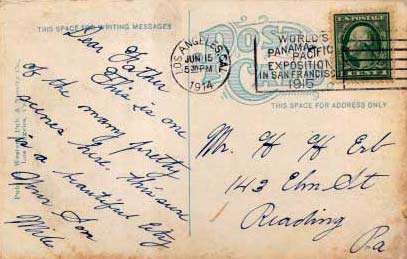 THIS SPACE FOR WRITING MESSAGES
Dear Father
This is one
of the many pretty
scenes here. This sure
is a beautiful city
Your Son
Mike
POST
CARD
LOS ANGELES, CAL.
JUN 15
5 30 PM
1914
WORLD'S
PANAMA PACIFIC
EXPOSITION
IN SAN FRANCISCO
1915
U.S. POSTAGE
THIS SPACE FOR ADDRESS ONLY
Mr. H H Erb
143 Elm St
Reading
Pa